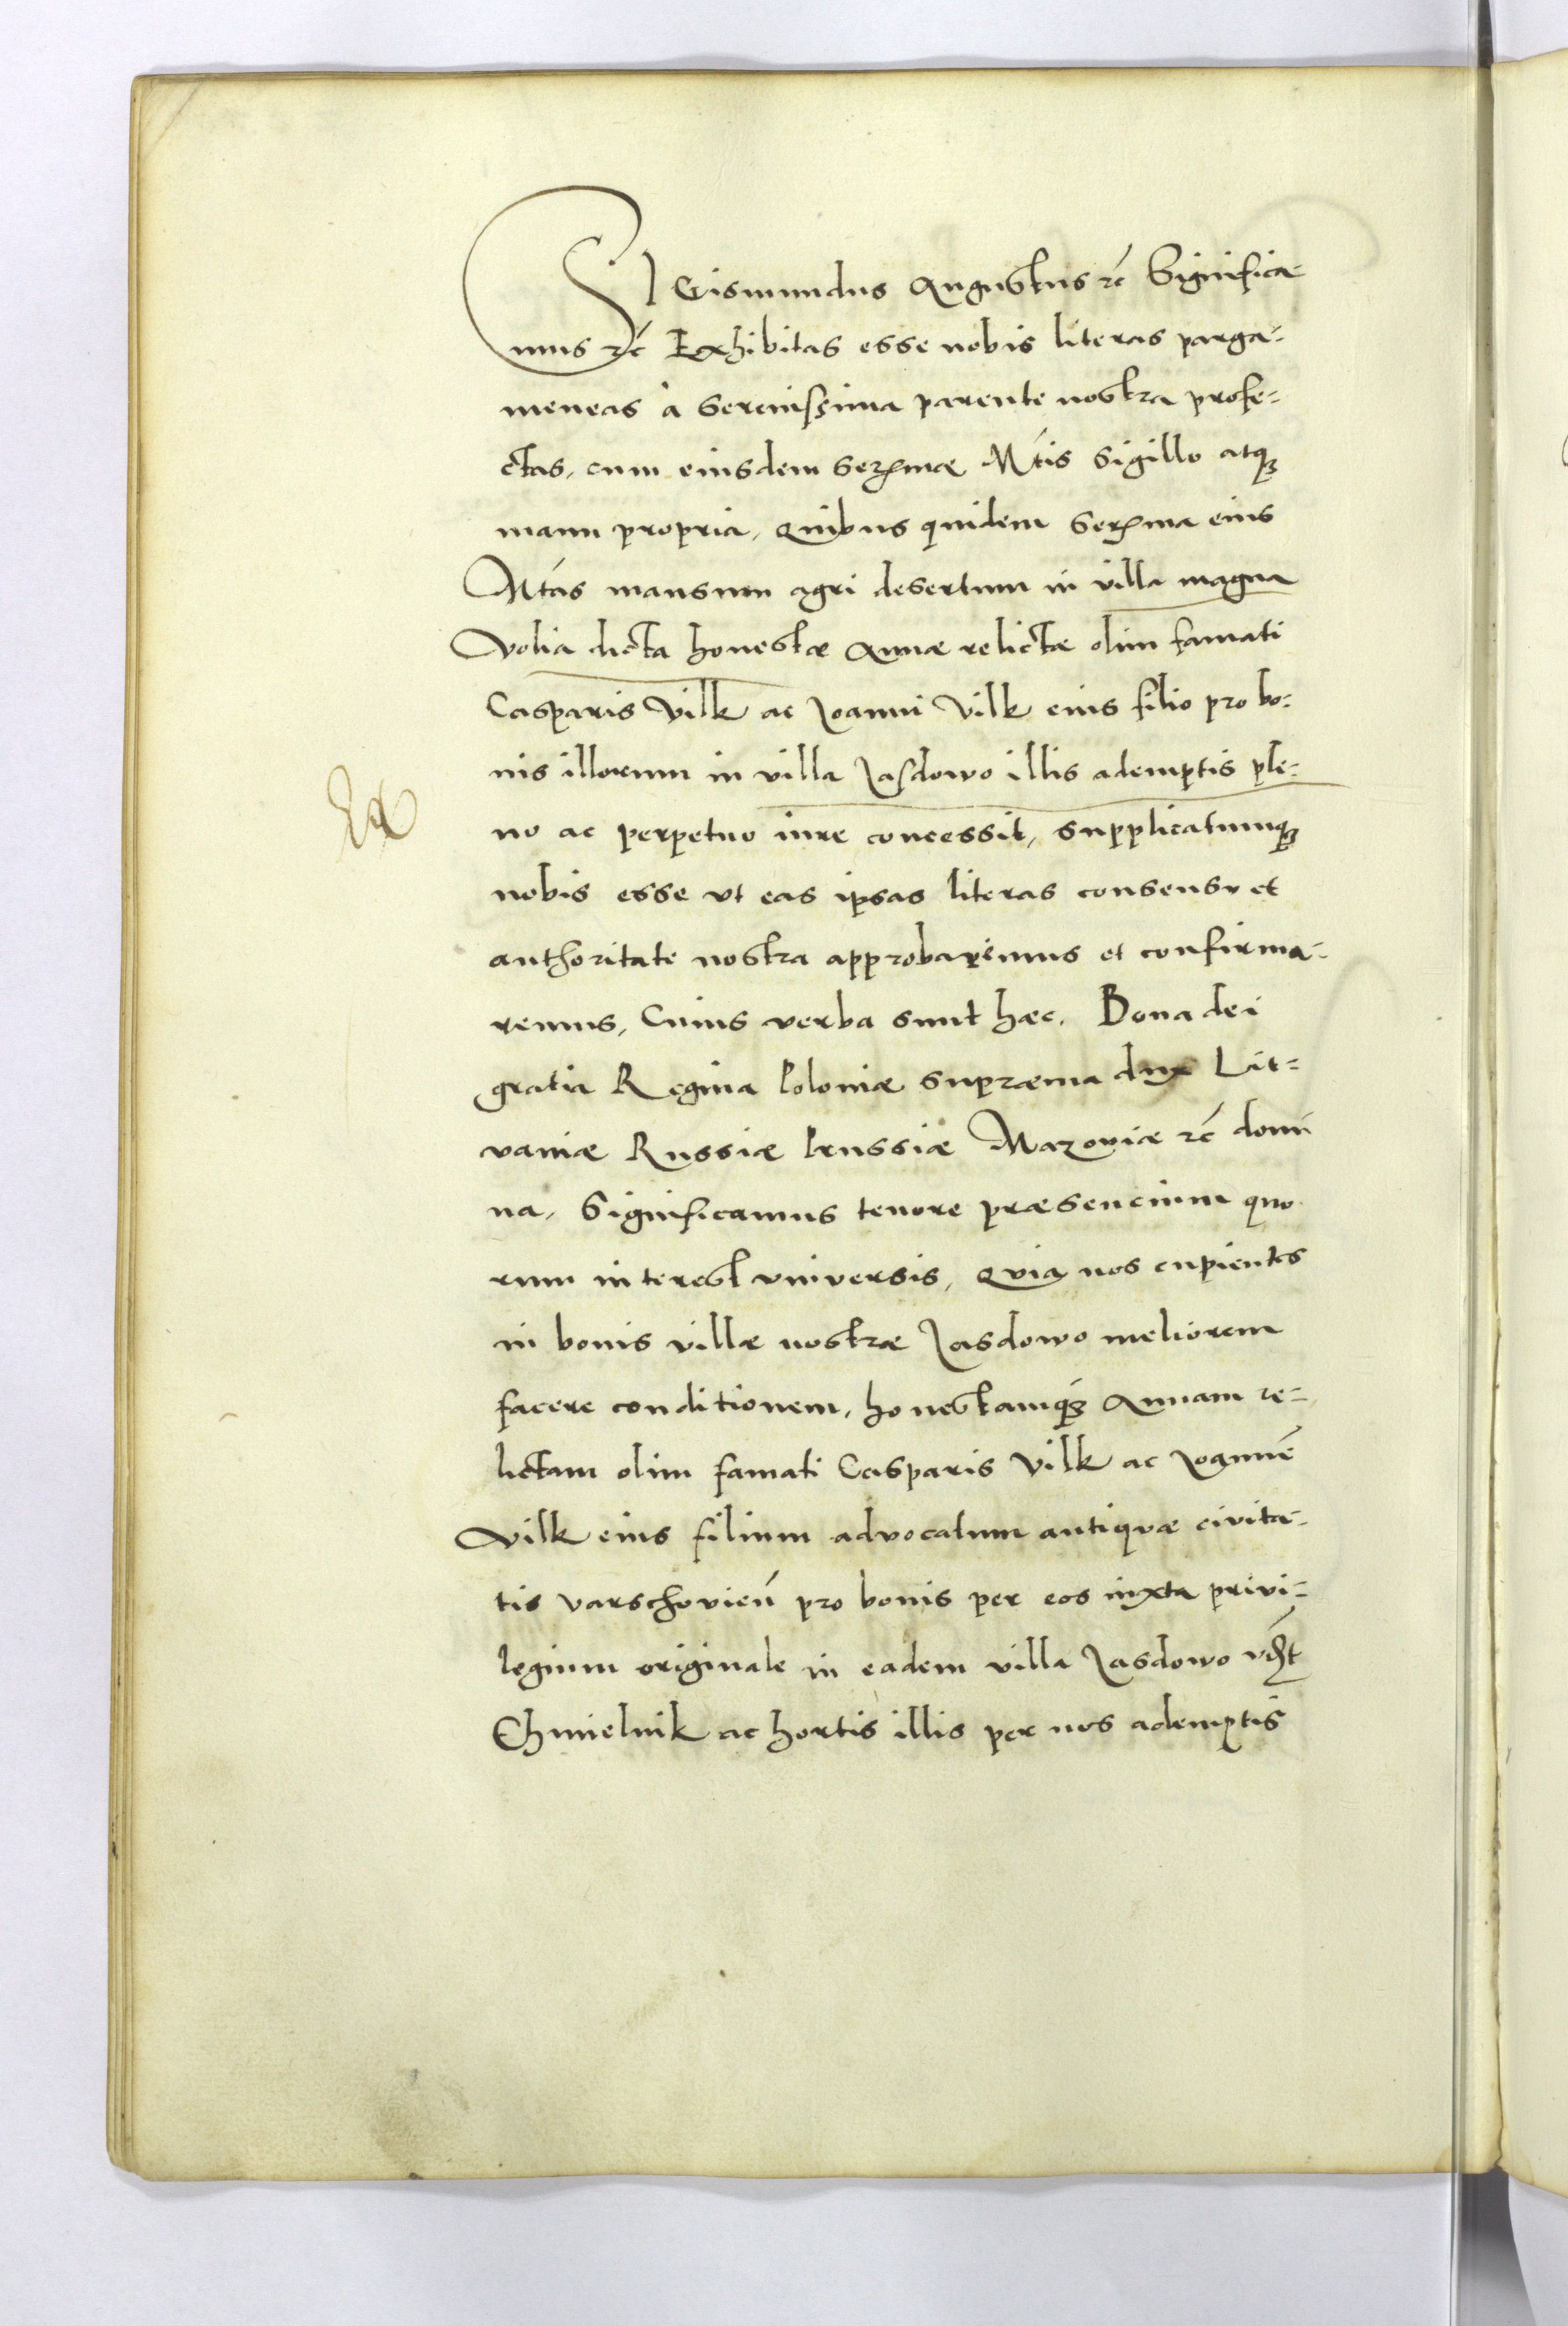 SIGismundus Augustus rc̃ Significa
mus rc̃ Exhibitas esse nobis literas parga-
meneas à serenissima parente nostra profe-
ctas, cum eiusdem serẽmæ Mt́is sigillo atq₃
manu propria, quibus quidem serẽma eius
Mt́as mansum agri desertum in villa magna
Volia dicta honestæ Annæ relictæ olim famati
Casparis Vilk ac Joanni Vilk eius filio pro bo-
nis illorum in villa Jasdowo illis ademptis ple-
no ac perpetuo iure concessit, supplicatumq₃
nobis esse vt eas ipsas literas consensv et
authoritate nostra approbaremus et confirma-
remus, Cuius verba sunt hæc. Bona dei
gratia Regina Poloniæ supræma dux Lit-
vaniæ Russiæ Prussiæ Mazoviæ rc̃ domi
na, Significamus tenore præsencium quo
rum interest vniversis, qvia nos cupientes
in bonis villæ nostræ Jasdowo meliorem
facere conditionem, honestamq́₃ Annam re-
lictam olim famati Casparis Vilk ac Joannẽ
Vilk eius filium advocatum antiqvæ civita-
tis varschovieñ pro bonis per eos iuxta privi-
legium originale in eadem villa Jasdowo
Chmielnik ac hortis illis per nos ademptis